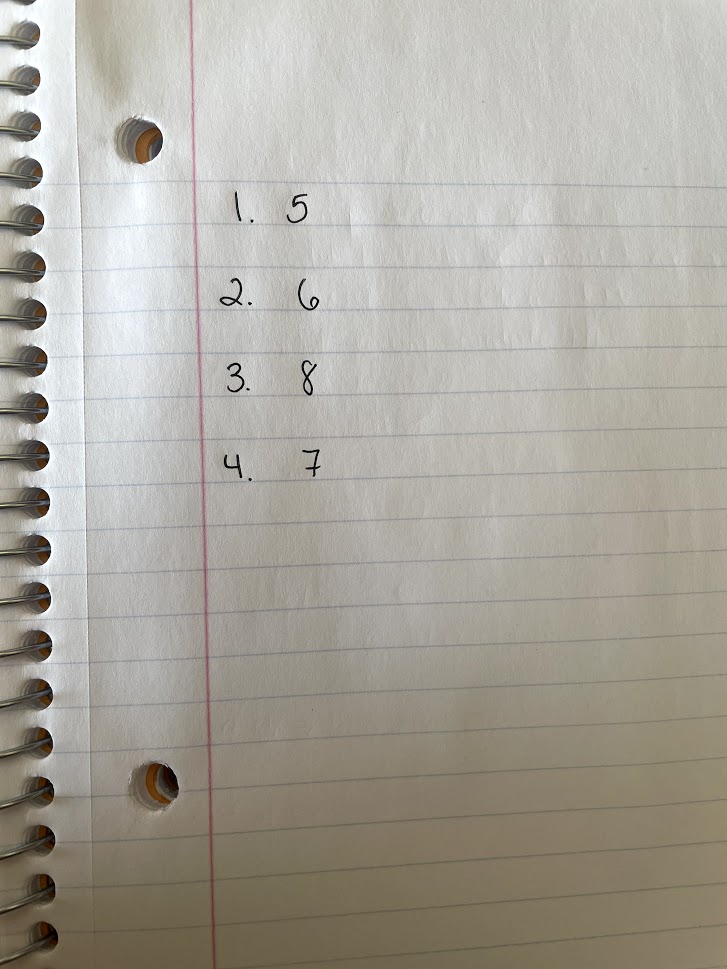 1. 5
2. 6
3. 8
4. 7